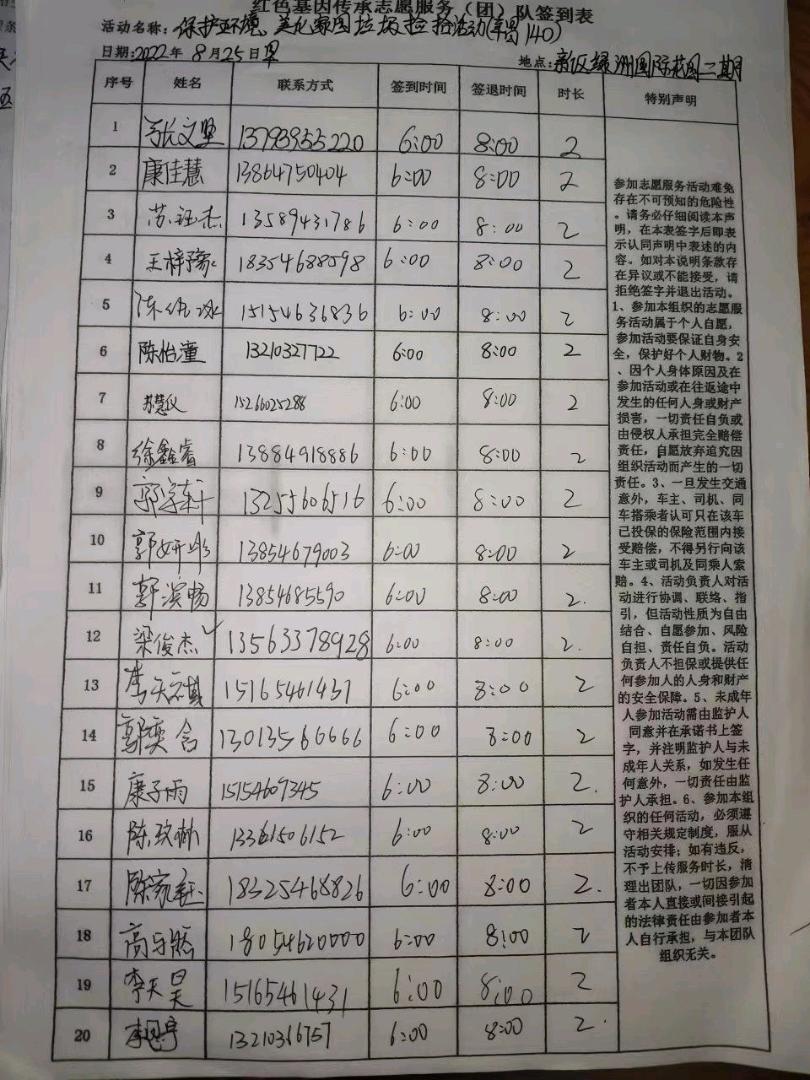 红色基因传承志愿服务（团）队签到表
活动名称：保护环境、美化家园垃圾捡拾活动(140)
日期：2022年8月25日
地点：新区绿洲国际花园二期
序号 姓名 联系方式 签到时间 签退时间 时长 特别声明
1 张文 13793955220 6:00 8:00 2
2 康佳慧 13864750404 6:00 8:00 2
3 苏钰杰 13589431786 6:00 8:00 2
4 王梓豪 18354688598 6:00 8:00 2
5 陈 15154636836 6:00 8:00 2
6 陈怡潼 13210327722 6:00 8:00 2
7 苏慧仪 15266025288 6:00 8:00 2
8 徐鑫睿 13884918886 6:00 8:00 2
9 郭轩 13255606516 6:00 8:00 2
10 郭妍 13854679003 6:00 8:00 2
11 郭滨畅 13854685590 6:00 8:00 2.
12 梁俊杰 13563378928 6:00 8:00 2.
13 李天 15165461431 6:00 8:00 2
14 郭奕含 13013566666 6:00 8:00 2
15 康子雨 15154609345 6:00 8:00 2.
16 陈玟 13361506152 6:00 8:00 2
17 陈家钰 18325468826 6:00 8:00 2.
18 高 18054620000 6:00 8:00 2
19 李天昊 15165461431 6:00 8:00 2
20 李 13210366757 6:00 8:00 2.
参加志愿服务活动难免
存在不可预知的危险性
。请务必仔细阅读本声
明，在本表签字后即表
示认同声明中表述的内
容。如对本说明条款存
在异议或不能接受，请
拒绝签字并退出活动。
1、参加本组织的志愿服
务活动属于个人自愿，
参加活动要保证自身安
全，保护好个人财物。2
、因个人身体原因及在
参加活动或在往返途中
发生的任何人身或财产
损害，一切责任自负或
由侵权人承担完全赔偿
责任，自愿放弃追究因
组织活动而产生的一切
责任。3、一旦发生交通
意外，车主、司机、同
车搭乘者认可只在该车
已投保的保险范围内接
受赔偿，不得另行向该
车主或司机及同乘人索
赔。4、活动负责人对活
动进行协调、联络、指
引，但活动性质为自由
结合、自愿参加、风险
自担、责任自负。活动
负责人不担保或提供任
何参加人的人身和财产
的安全保障。5、未成年
人参加活动需由监护人
同意并在承诺书上签
字，并注明监护人与未
成年人关系，如发生任
何意外，一切责任由监
护人承担。6、参加本组
织的任何活动，必须遵
守相关规定制度，服从
活动安排；如有违反，
不予上传服务时长，清
理出团队，一切因参加
者本人直接或间接引起
的法律责任由参加者本
人自行承担，与本团队
组织无关。